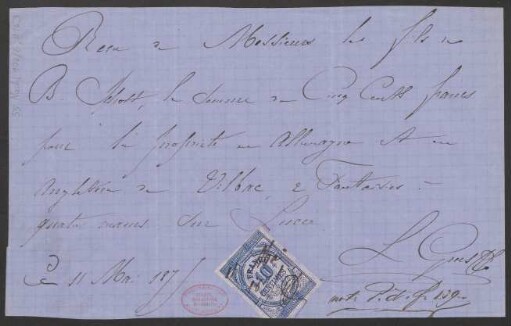 Reçu de Messieurs les fils de
B. Schott, la somme de Cinq Cents francs
pour la propriété en Allemagne et en
Angleterre de Vilbac, 2 Fantaisies à
quatre mains sur
Ce 11 Mai 187
10